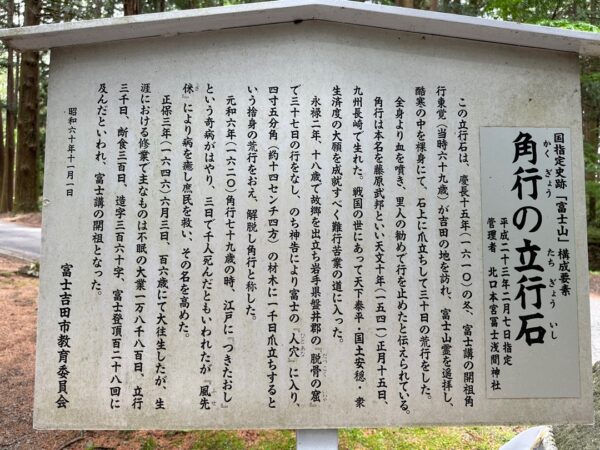 国指定史跡「富士山」構成要素
角行の立行石
かくぎょう たちぎょういし
平成二十三年二月七日指定
管理者 北口本宮冨士浅間神社
この立行石は、慶長十五年(一六一〇)の冬、富士講の開祖角
行東覚(当時六十九歳)が吉田の地を訪れ、富士山霊を遥拝し、
酷寒の中を裸身にて、石上に爪立ちして三十日の荒行をした。
全身より血を噴き、里人の勧めで行を止めたと伝えられている。
角行は本名を藤原武邦といい天文十年(一五四一)正月十五日、
九州長崎で生れた。戦国の世にあって天下泰平・国土安穏・衆
生済度の大願を成就すべく難行苦業の道に入った。
永禄二年、十八歳で故郷を出立ち岩手県磐井郡の『脱骨の窟』
で三十七日の行をなし、のち神告により富士の『人穴』に入り、
四寸五分角(約十四センチ四方)の材木に一千日爪立ちすると
いう捨身の荒行をおえ、解脱し角行と称した。
元和六年(一六二〇)角行七十九歳の時、江戸に『つきたおし』
という奇病がはやり、三日で千人死んだともいわれたが『風先
俕』により病を癒し庶民を救い、その名を高めた。
正保三年(一六四六)六月三日、百六歳にて大往生したが、生
涯における修業で主なものは不眠の大業一万八千八百日、立行
三千日、断食三百日、造字三百六十字、富士登頂百二十八回に
及んだといわれ、富士講の開祖となった。
昭和六十年十一月一日
富士吉田市教育委員会